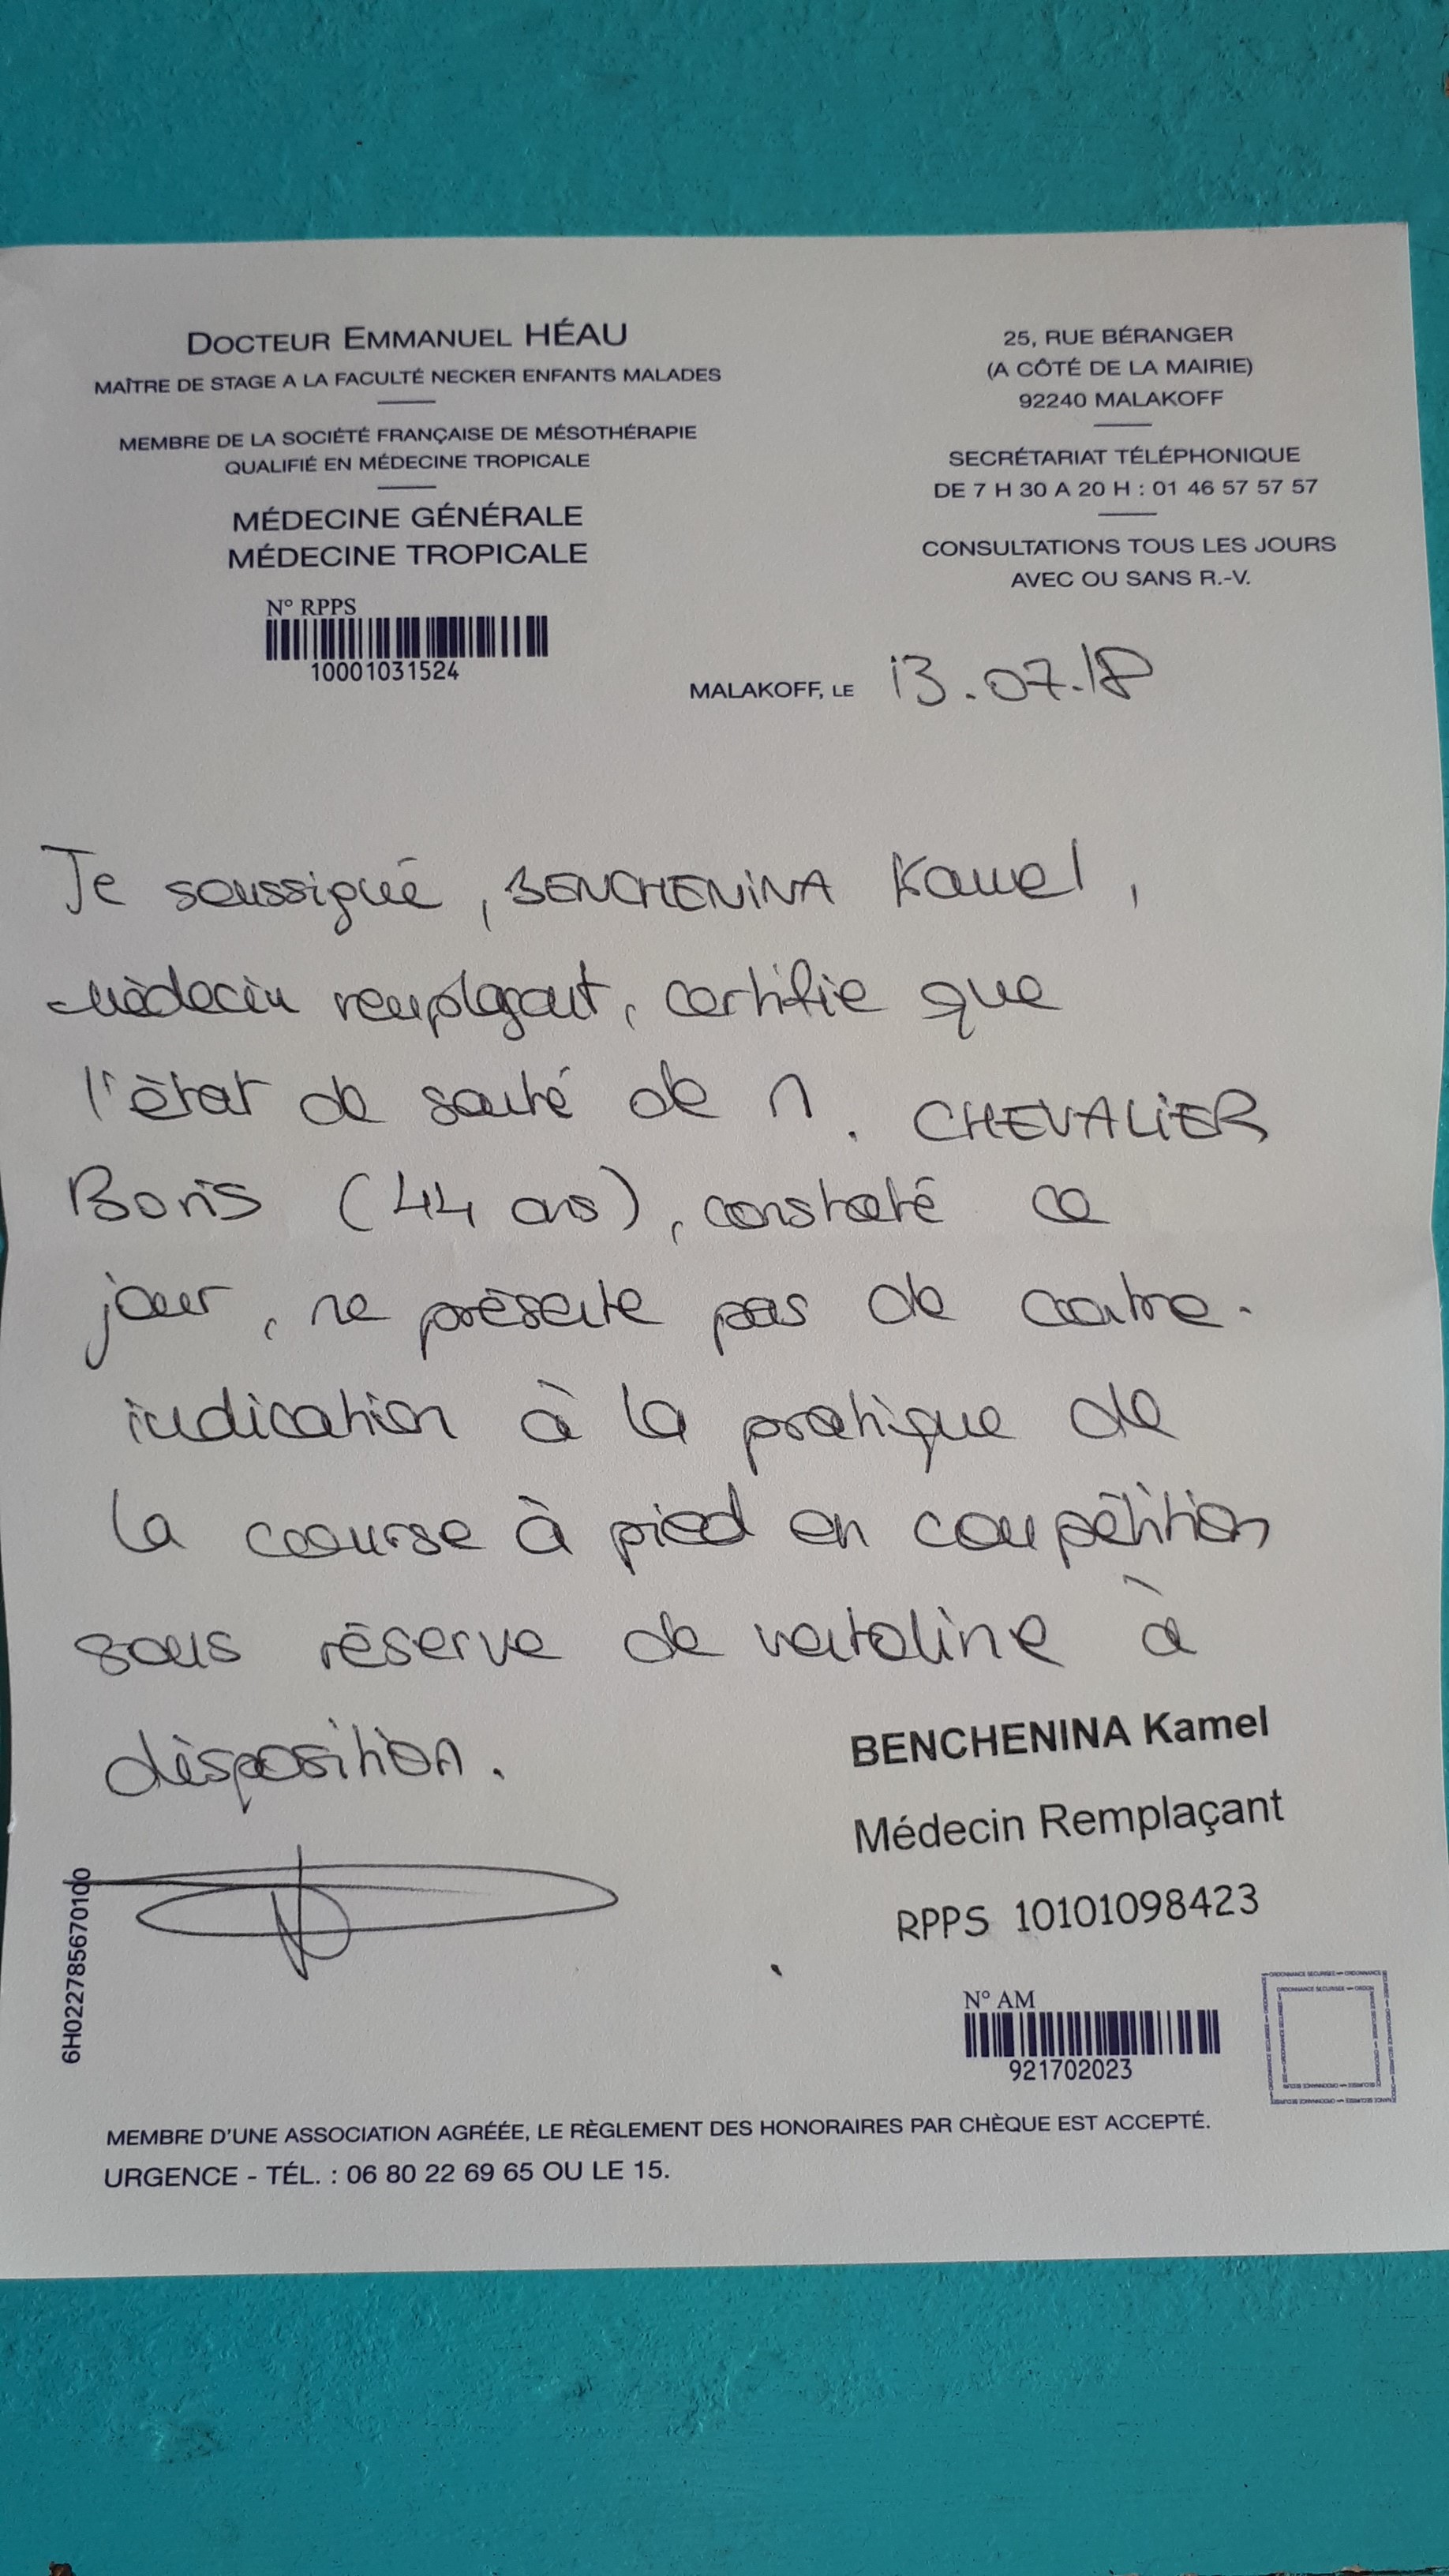 DOCTEUR EMMANUEL HÉAU
MAÎTRE DE STAGE A LA FACULTÉ NECKER ENFANTS MALADES
MEMBRE DE LA SOCIÉTÉ FRANÇAISE DE MÉSOTHÉRAPIE
QUALIFIÉ EN MÉDECINE TROPICALE
MÉDECINE GÉNÉRALE
MÉDECINE TROPICALE
N° RPPS
10001031524
25, RUE BÉRANGER
(A CÔTÉ DE LA MAIRIE)
92240 MALAKOFF
SECRÉTARIAT TÉLÉPHONIQUE
DE 7 H 30 A 20 H : 01 46 57 57 57
CONSULTATIONS TOUS LES JOURS
AVEC OU SANS R.-V.
MALAKOFF, LE 13.07.18
Je soussigné, BENCHENINA Kamel,
Médecin remplaçant, certifie que
l'état de santé de M. CHEVALIER
Boris (44 ans), constaté ce
jour, ne présente pas de contre-
indication à la pratique de
la course à pied en compétition
sous réserve de ventoline à
disposition.
BENCHENINA Kamel
Médecin Remplaçant
RPPS 10101098423
6H022785670100
N° AM
921702023
MEMBRE D'UNE ASSOCIATION AGRÉÉE, LE RÈGLEMENT DES HONORAIRES PAR CHÈQUE EST ACCEPTÉ.
URGENCE - TÉL. : 06 80 22 69 65 OU LE 15.